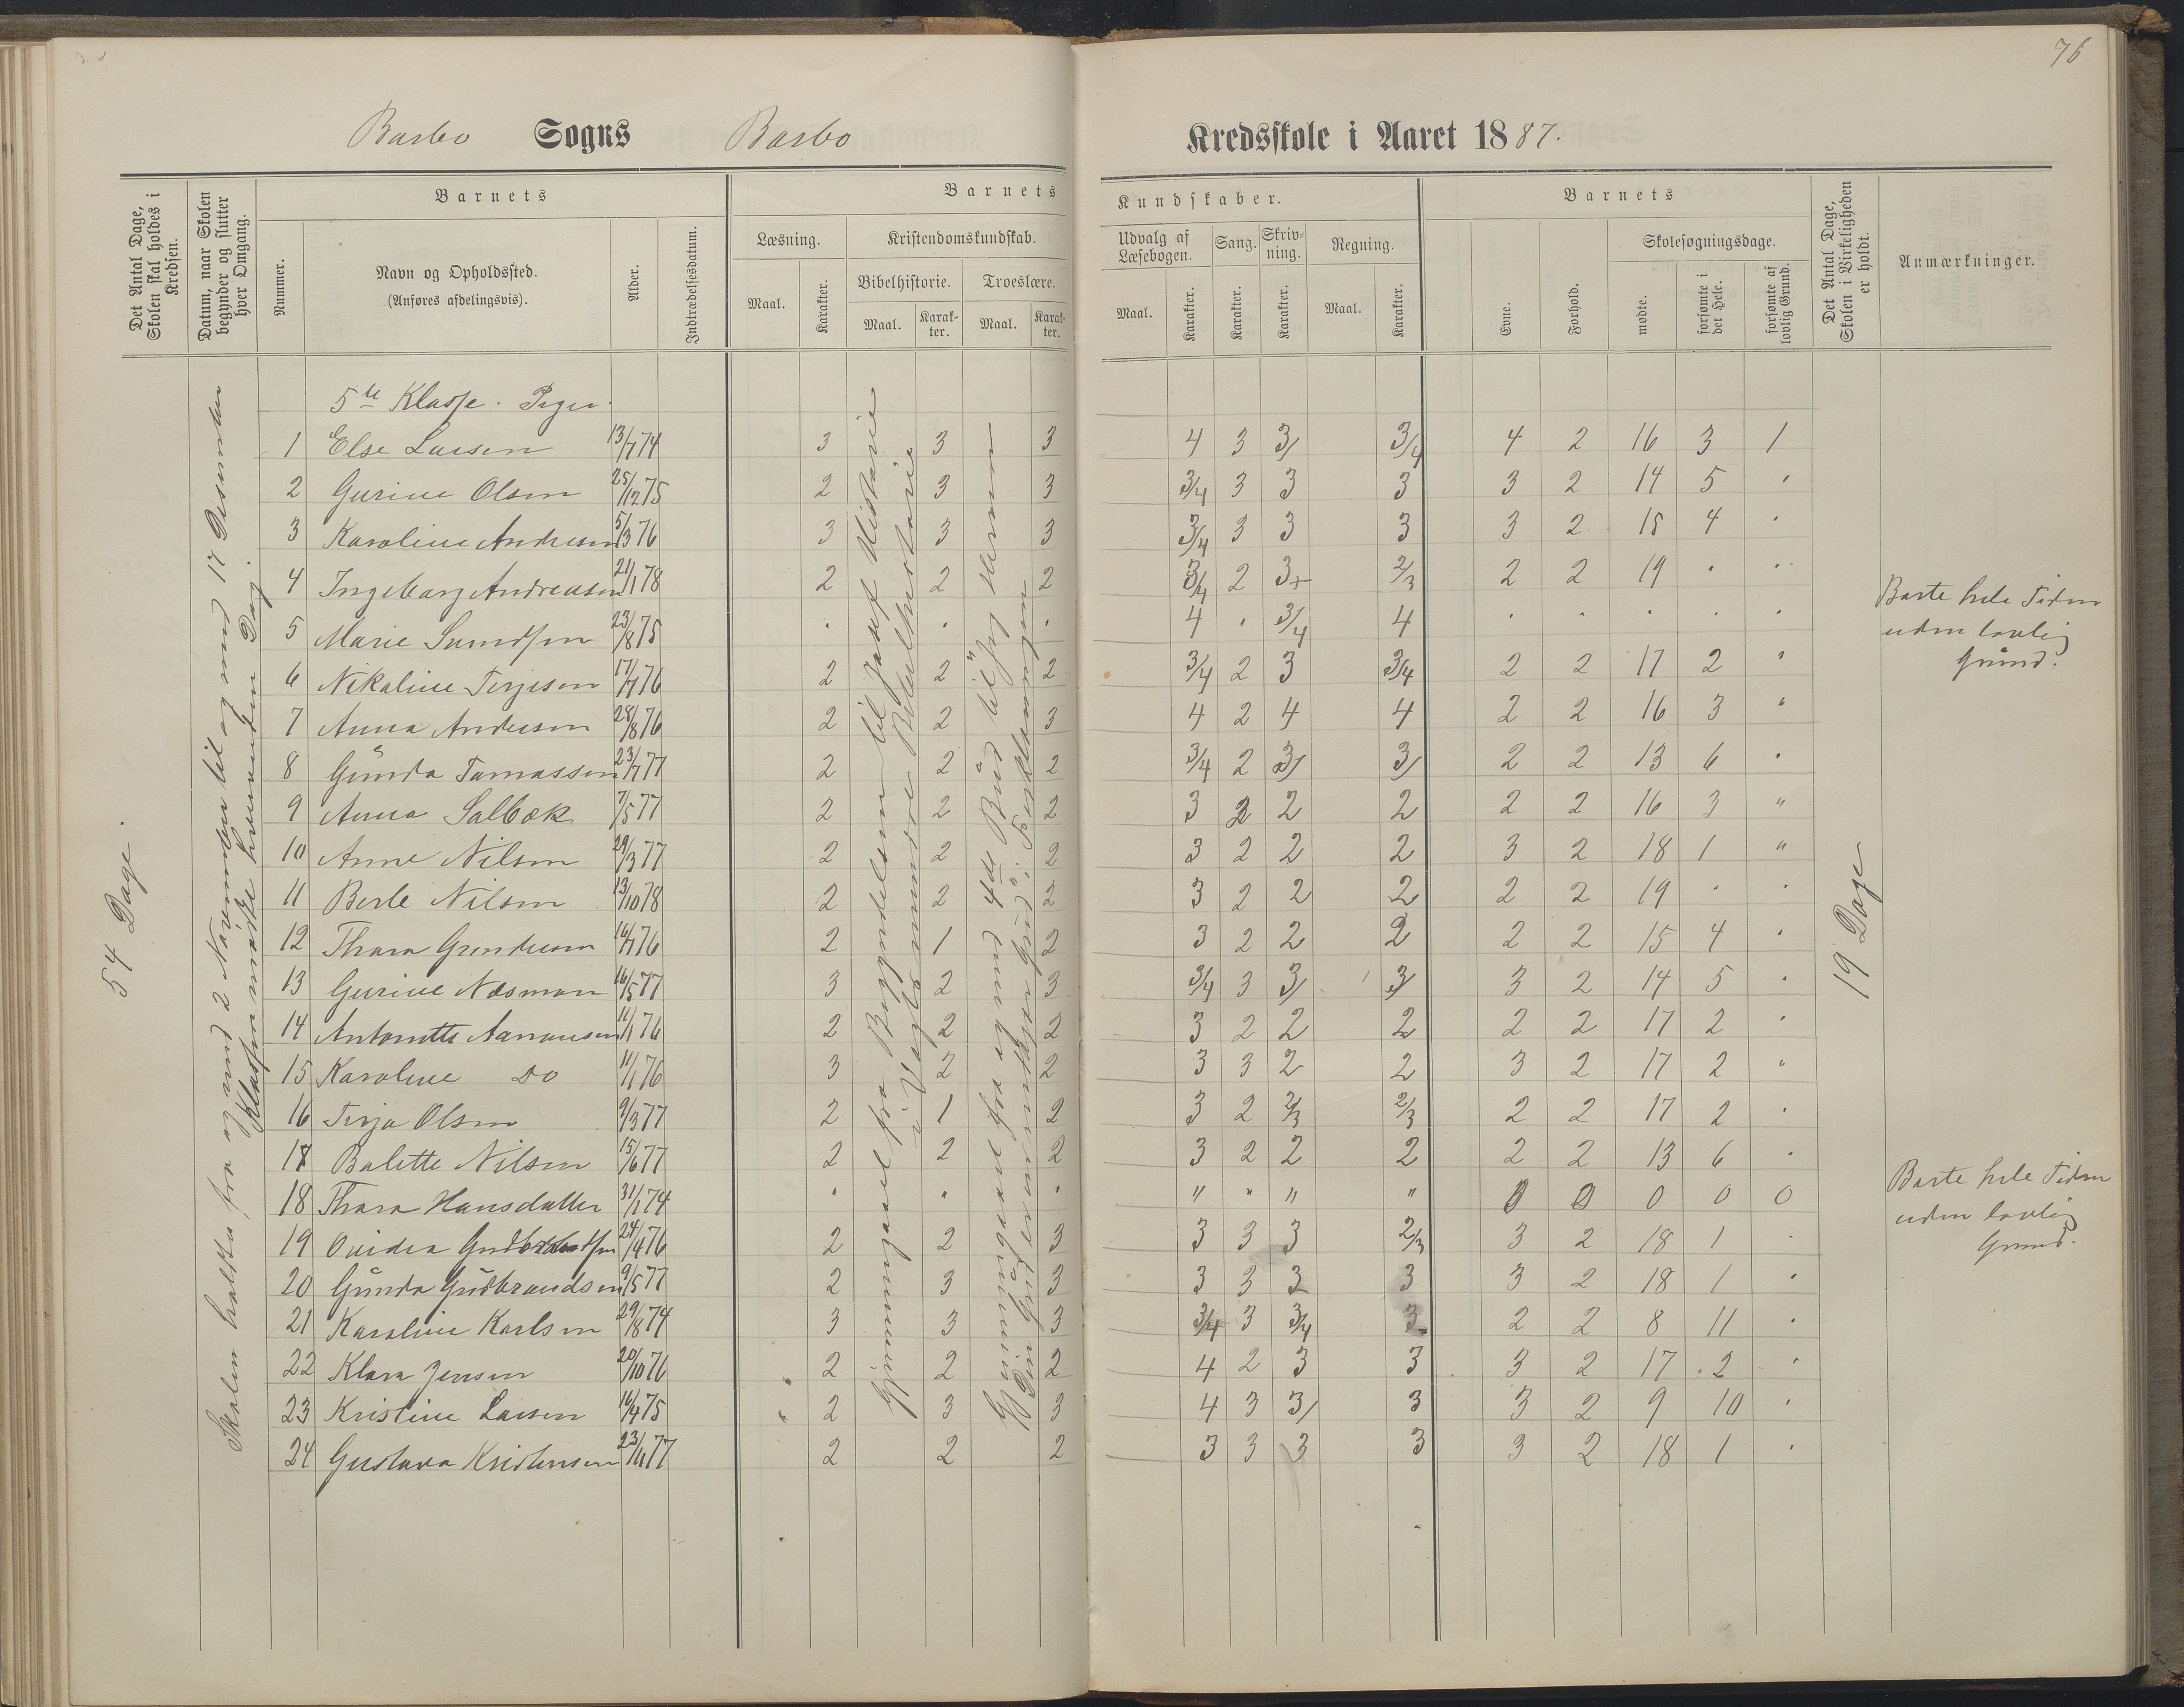 76
Barbo Sogns Barbo Kredsskole i Aaret 1887.
Det Antal Dage, Skolen skal holdes i Kredsen.
Datum, naar Skolen begynder og slutter hver Omgang.
Nummer.
Barnets
Navn og Opholdssted.
(Anføres afdelingsvis).
Alder.
Indtrædelsesdatum.
Barnets Kundskaber.
Læsning.
Maal. Karakter.
Kristendomskundskab.
Bibelhistorie. Troeslære.
Maal. Karakter. Maal. Karakter.
Udvalg af Læsebogen.
Maal. Karakter.
Sang.
Karakter.
Skrivning.
Karakter.
Regning.
Maal. Karakter.
Barnets
Evne. Forhold.
Skolesøgningsdage.
mødte. forsømte i det Hele. forsømte af lovlig Grund.
Det Antal Dage, Skolen i Virkeligheden er holdt.
Anmærkninger.
54 Dage.
Skolen holdtes fra og med 2 November til og med 17 Desember
Klassen mødte hveranden Dag.
Gjennemgaaet fra Begyndelsen til Josef Historie
i Vogts mindre Bibelhistorie
Gjennemgaaet fra og med 4de Bud til
19 Dage
5te Klasse. Piger.
1 Else Larsen 13/7 74 3 3 3 4 3 3/ 3/4 4 2 16 3 1
2 Gurine Olsen 25/12 75 2 3 3 3/4 3 3 3 3 2 14 5 "
3 Karoline Andresen 5/3 76 3 3 3 3/4 3 3 3 3 2 15 4 "
4 Ingeborg Andreasen 21/1 78 2 2 2 3/4 2 3+ 2/3 2 2 19 " "
5 Marie Samdsen 23/8 75 " " " 4 " 3/4 4 " " " " " Borte hele Tiden
uden lovlig
Grund.
6 Nikoline Terjesen 17/7 76 2 2 2 3/4 2 3 3/4 2 2 17 2 "
7 Anna Andersen 28/8 76 2 2 3 4 2 4 4 2 2 16 3 "
8 Gunda Tomassen 23/7 77 2 2 2 3/4 2 3/ 3/ 2 2 13 6 "
9 Anna Salbok 7/5 77 2 2 2 3 2 2 2 2 2 16 3 "
10 Anne Nilsen 29/3 77 2 2 2 3 2 2 2 3 2 18 1 "
11 Berte Nilsen 13/10 78 2 2 2 3 2 2 2 2 2 19 " "
12 Thora Gundersen 16/7 76 2 1 2 3 2 2 2 2 2 15 4 "
13 Gurine Næsman 16/5 77 3 2 3 3/4 3 3/ 3/ 3 2 14 5 "
14 Antonette Aanonsen 11/1 76 2 2 2 3 2 2 2 2 2 17 2 "
15 Karoline Do 11/1 76 3 2 2 3 3 2 2 3 2 17 2 "
16 Terja Olsen 9/3 77 2 1 2 3 2 2/3 2/3 2 2 17 2 "
17 Bolette Nilsen 15/6 77 2 2 2 3 2 2 2 2 2 13 6 "
18 Thora Hansdatter 31/1 74 " " " " " " " 0 0 0 0 0 Borte hele Tiden
uden lovlig
Grund.
19 Ovidia Gudbrandsen 24/4 76 2 2 3 3 3 3 2/3 3 2 18 1 "
20 Gunda Gudbrandsen 9/5 77 2 3 3 3 3 3 3 3 2 18 1 "
21 Karoline Karlsen 29/8 74 3 3 3 3/4 3 3/4 3 2 2 8 11 "
22 Klara Jensen 20/10 76 2 2 2 4 2 3 3 3 2 17 2 "
23 Kristine Larsen 16/4 75 2 3 3 4 3 3/ 3 3 2 9 10 "
24 Gustava Kristensen 23/11 77 2 2 2 3 3 3 3 3 2 18 1 "